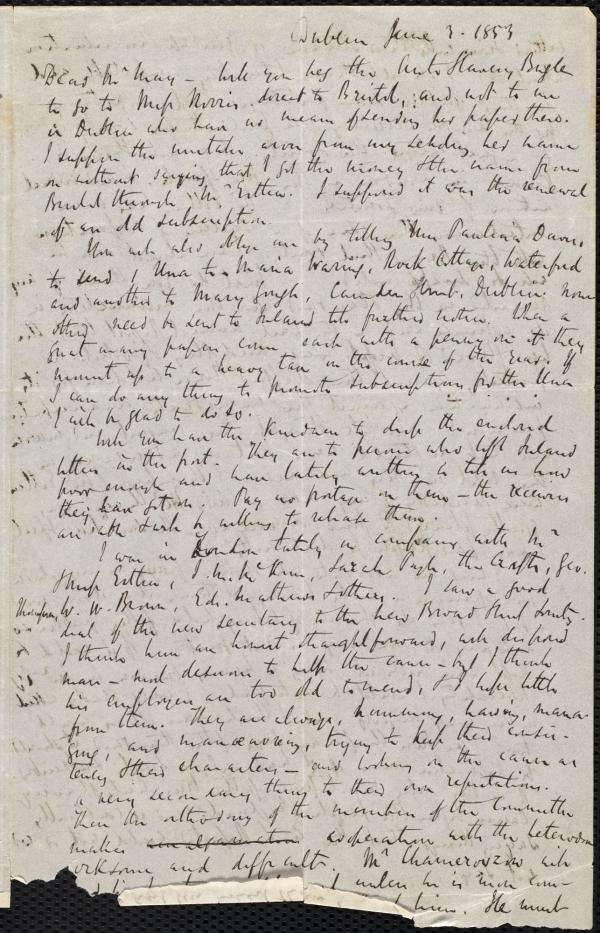 Dublin June 3. 1853
Dear Mr May — Will you beg the Anti Slavery Bugle
to go to Miss Norris direct to Bristol, and not to me
in Dublin who have no means of sending her papers there.
I suppose the mistake arose from my sending her name
on without saying that I got the money & the name from
Bristol through Mr Estlin. I supposed it was the renewal
of an old subscription.
You will also oblige me by telling Mrs Paulina Davis,
to send 1 Una to Maria Waring, Rock Cottage, Waterford
and another to Mary Gough, Camden Street, Dublin. None
other need be sent to Ireland till further notice. When a
great many papers come each with a penny on it they
mount up to a heavy tax in the course of the year. If
I can do any thing to promote subscriptions for the Una
I will be glad to do so.
Will you have the kindness to drop the enclosed
letters in the post. They are to persons who left Ireland
poor enough and have lately written to tell us how
they have got on. Pay no postage on them — the receivers
are able & will be willing to release them.
I was in London lately in company with Mr
& Miss Estlin, J. M. McKim, Sarah Pugh, the Crafts, Geo.
Thompson, W. W. Brown, Ed. Mathews & others. I saw a good
deal of the new secretary to the New Broad Street Society.
I think him an honest straightforward, well disposed
man — most desirous to help the cause — but I think
his employers are too old to mend, & I hope little
from them. They are always, humming, hawing, mana-
ging, and manœuvering, trying to keep their consis-
tency & their characters — and looking on the cause as
a very secondary thing to their own reputations.
Then the orthodoxy of the members of the Committee
makes amalgamation cooperation with the heterodox
irksome and difficult. Mr Chamerovzow will
unless he is more com-
him. He must